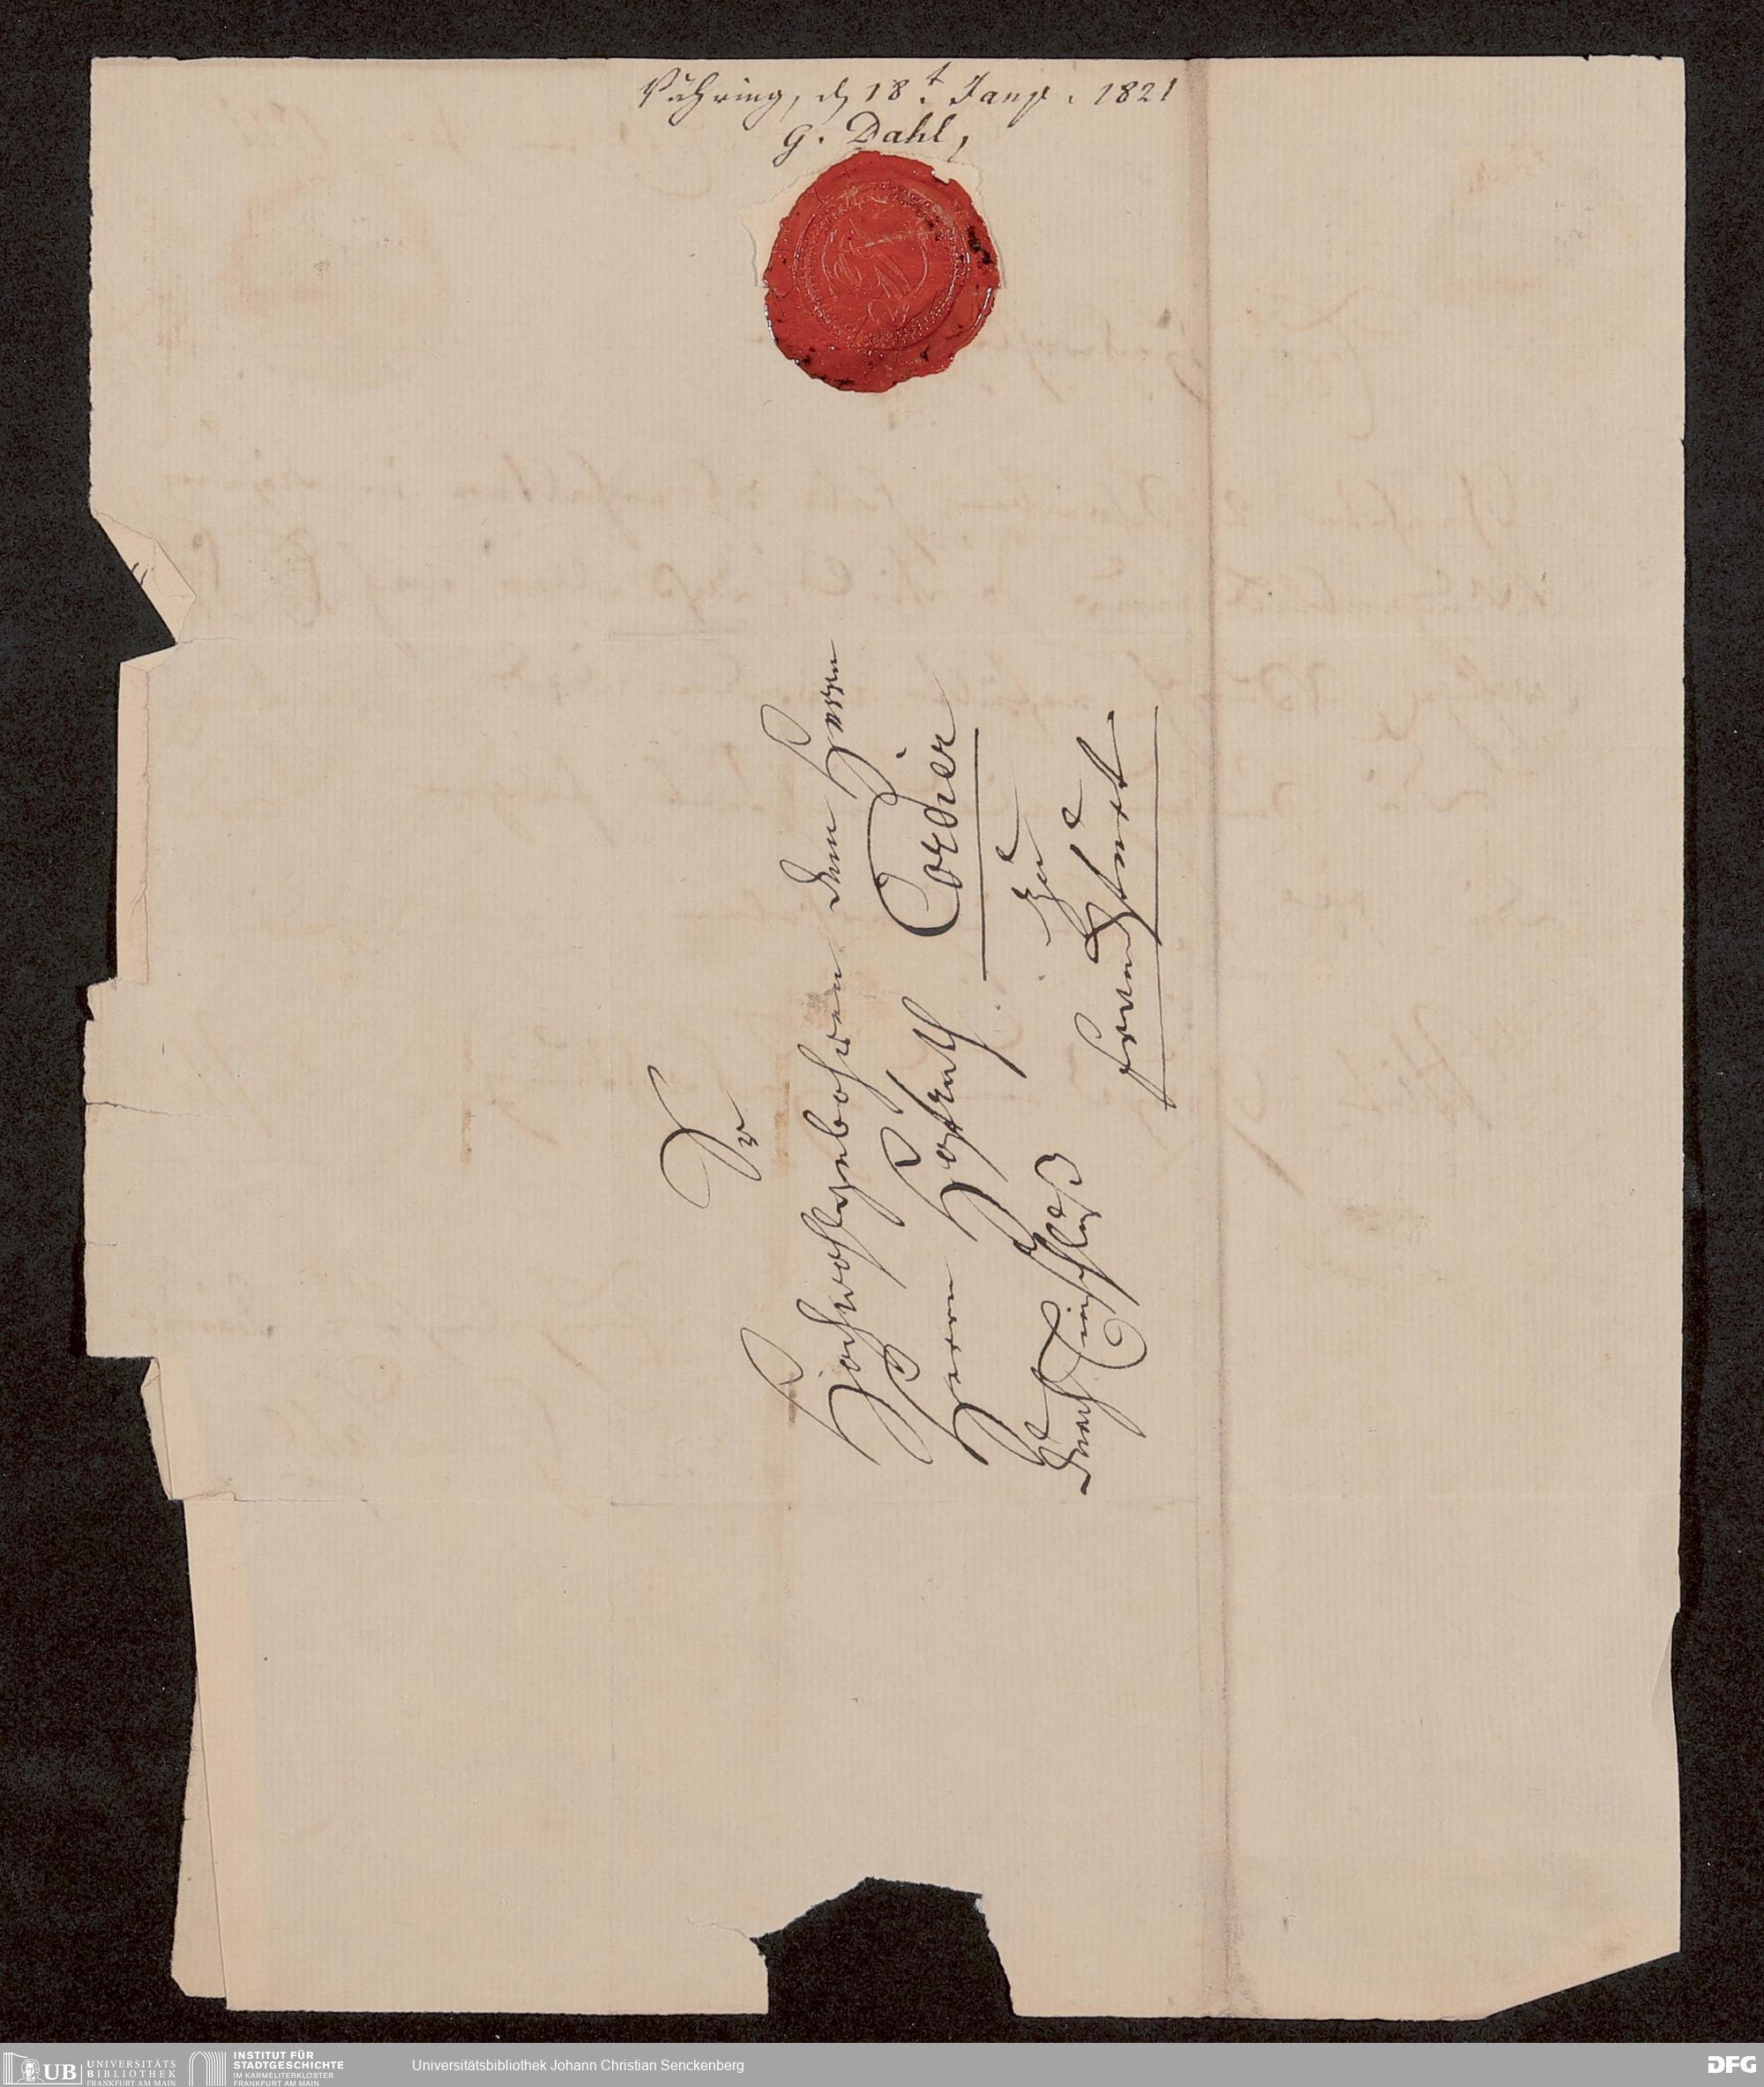 Vöhring, d 18.t Janr. 1821
G. Dahl,
Sr
Hochwohlgebohren dem Herrn
Herrn Hofrath Cordier
durch Einschluß
zu
UB UNIVERSITÄTS
BIBLIOTHEK
FRANKFURT AM MAIN
INSTITUT FÜR
STADTGESCHICHTE
IM KARMELITERKLOSTER
FRANKFURT AM MAIN
Universitätsbibliothek Johann Christian Senckenberg
DFG